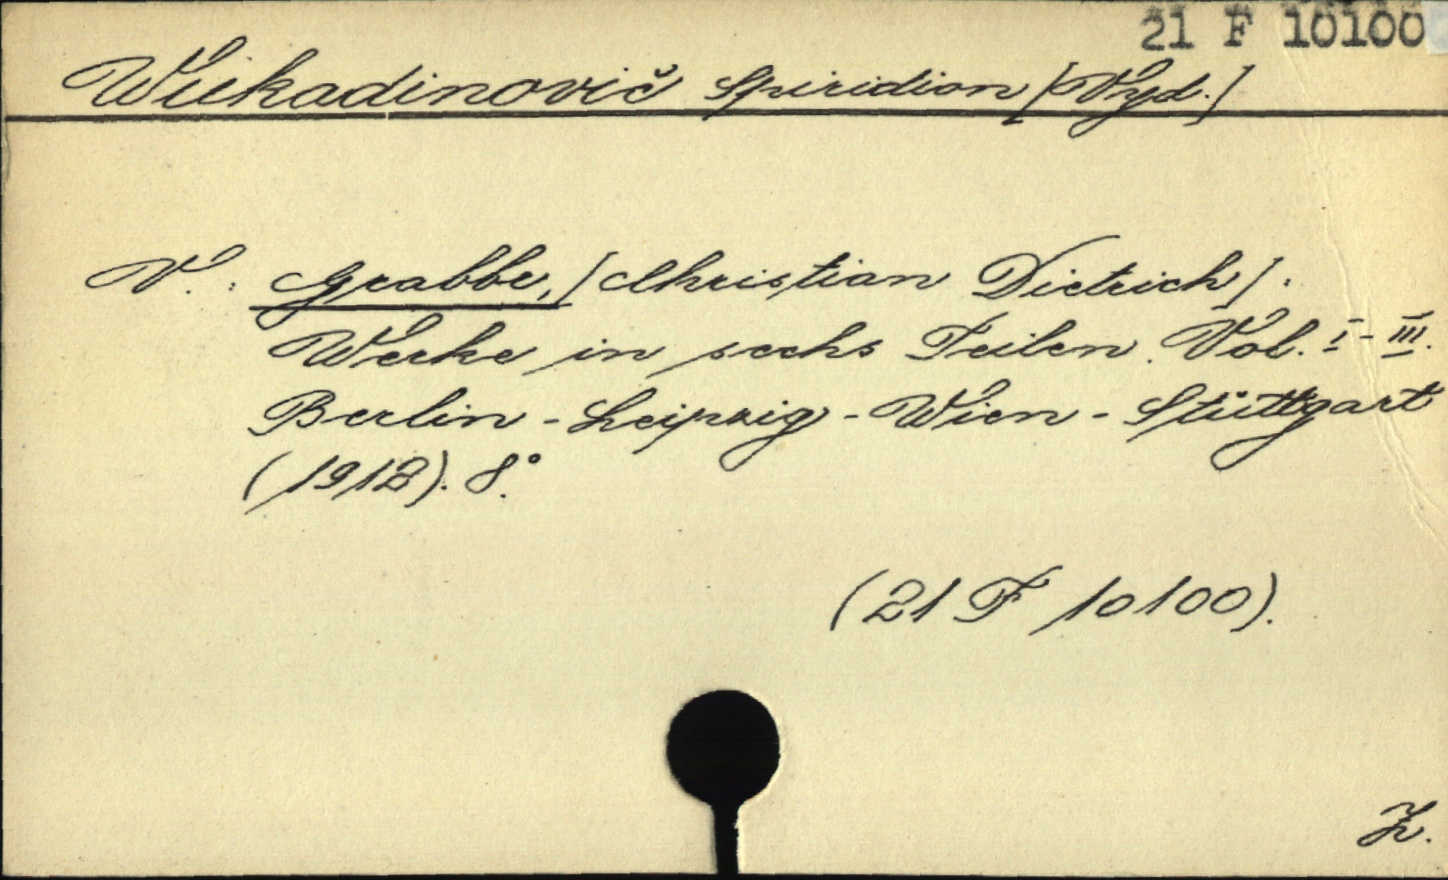 21 F 10100
Wukadinovič Spiridion [Vyd.]
V.: Grabbe, [Christian Dietrich].
Werke in sechs Teilen. Vol. I-III.
Berlin - Leipzig - Wien - Stuttgart
(1912). 8°.
(21 F 10100).